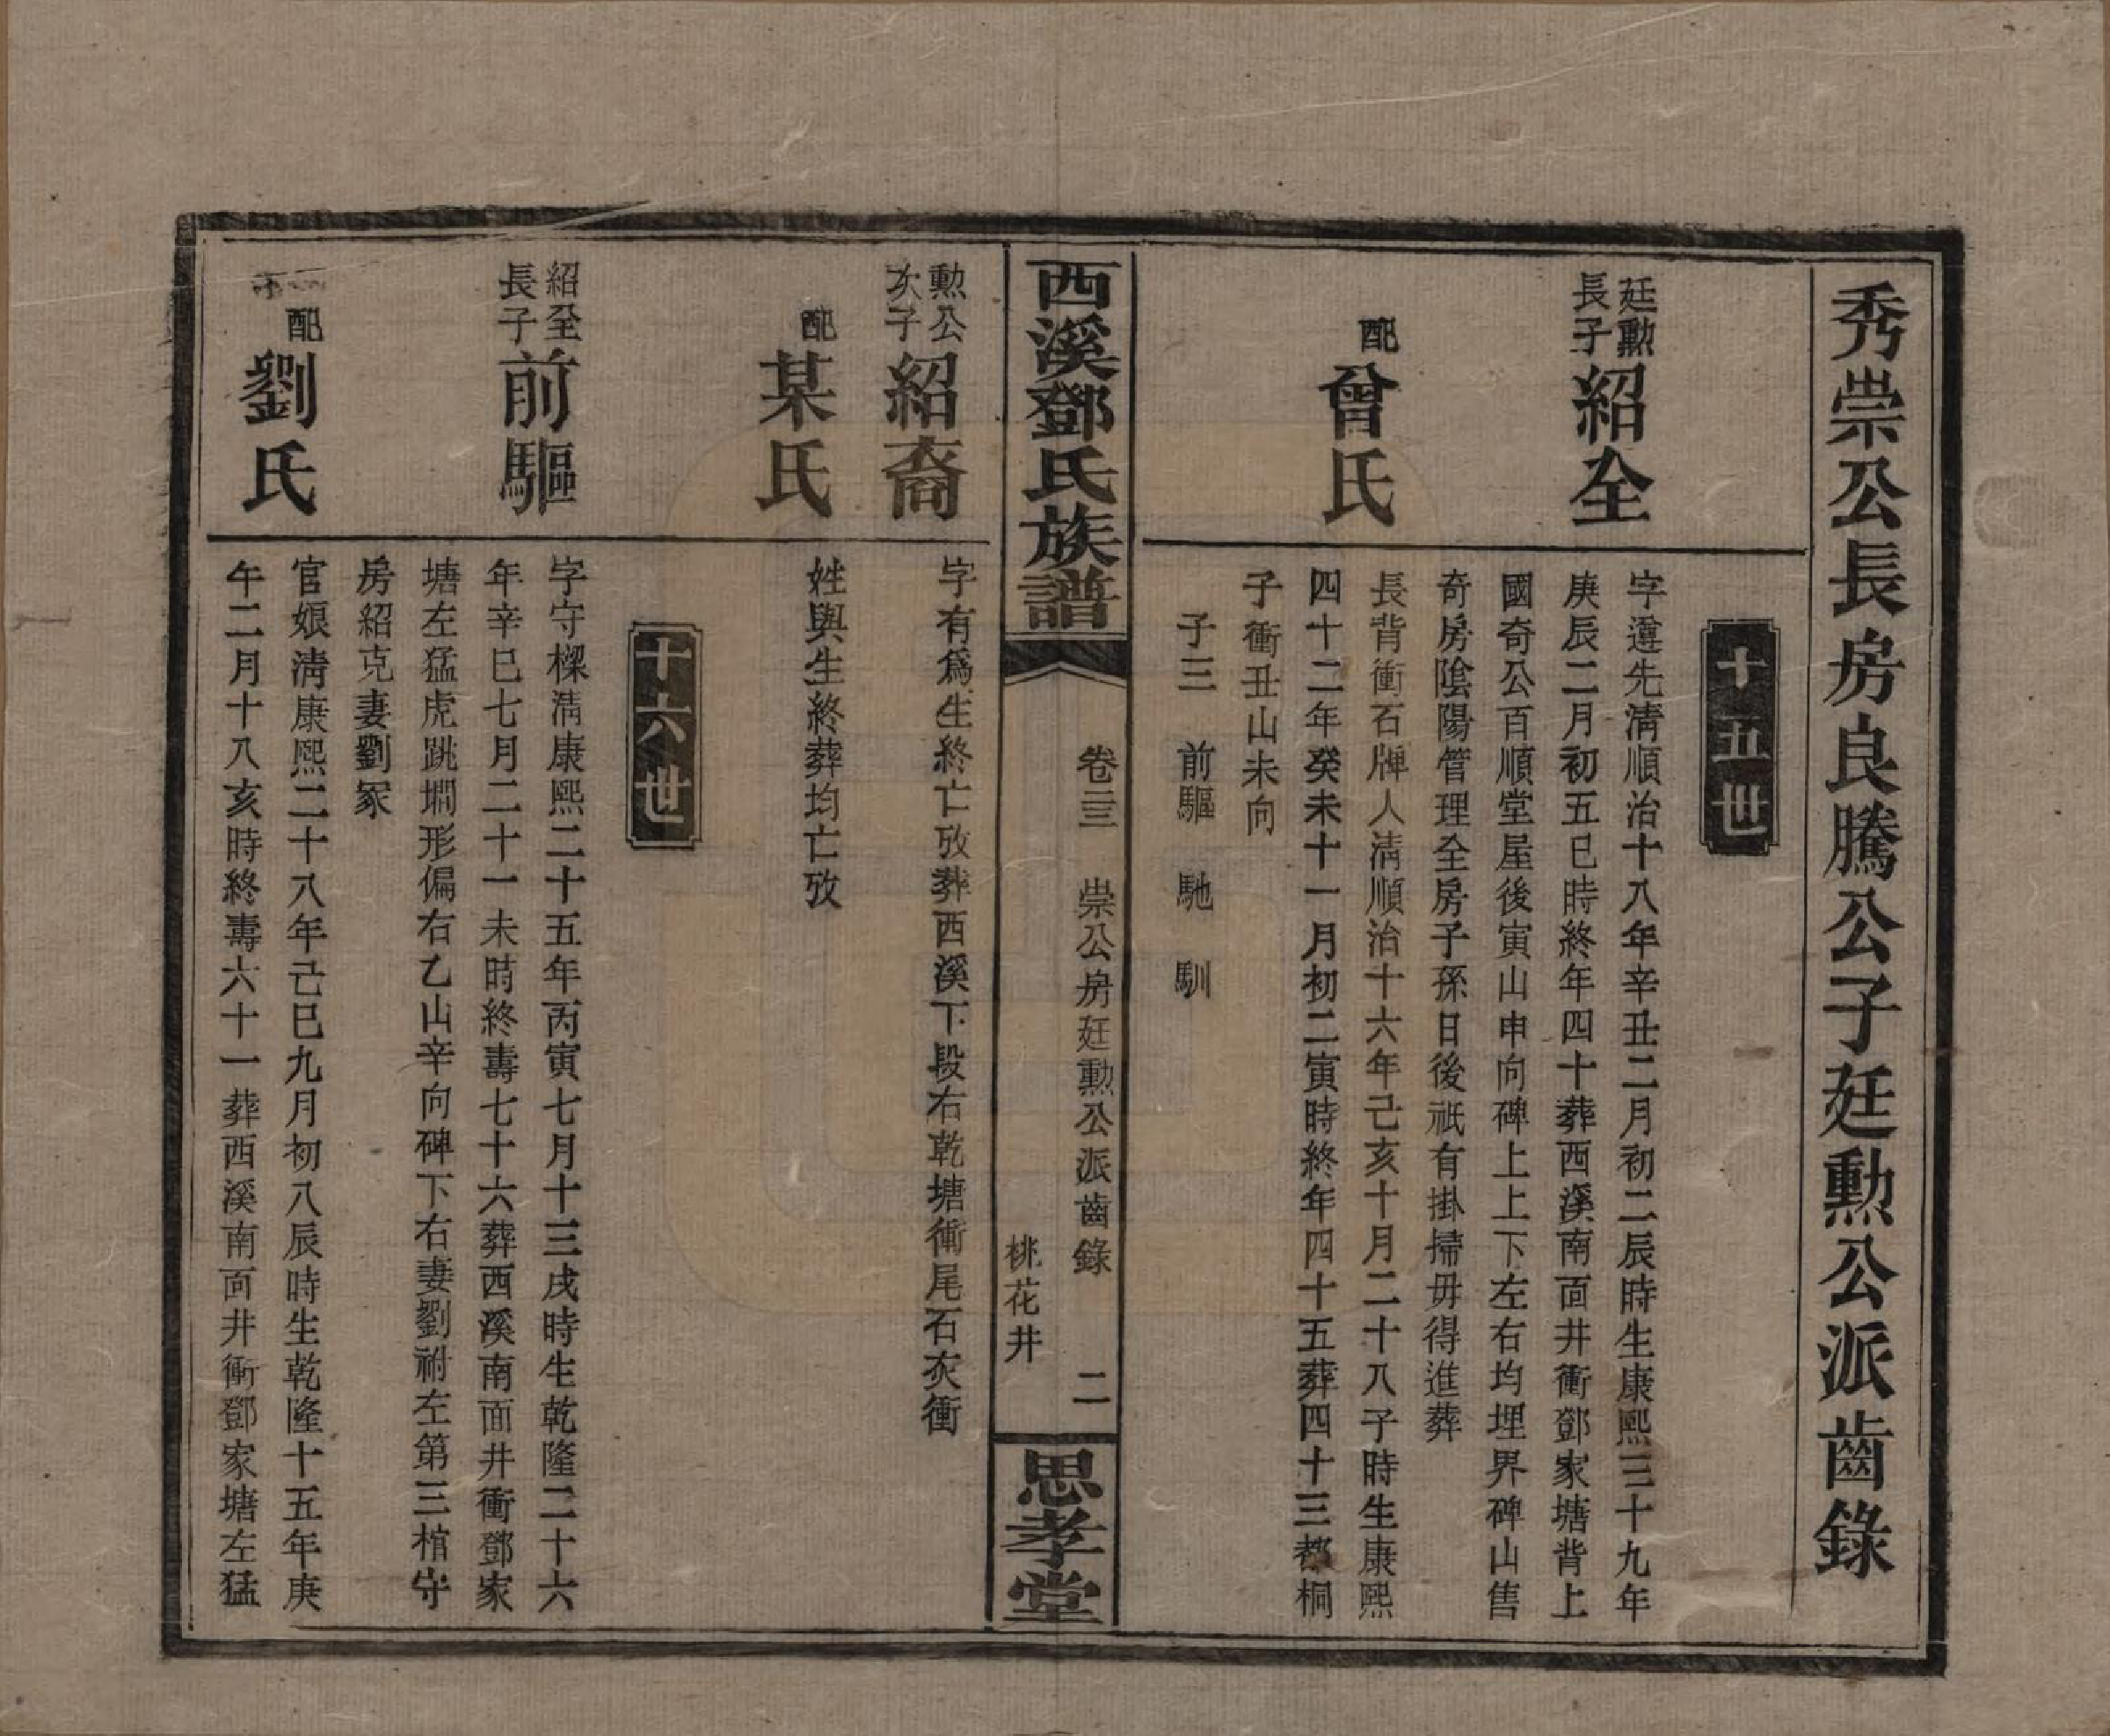 秀崇公長房良騰公子廷勳公派齒錄
十五世
廷勳
長子
紹全
字遵先淸順治十八年辛丑二月初二辰時生康熙三十九年
庚辰二月初五巳時終年四十葬西溪南面井衝鄧家塘背上
國奇公百順堂屋後寅山申向碑上上下左右均埋界碑山售
奇房陰陽管理全房子孫日後祇有掛掃毋得進葬
配
曾氏
長背衝石牌人淸順治十六年己亥十月二十八子時生康熙
四十二年癸未十一月初二寅時終年四十五葬四十三都桐
子衝丑山未向
子三 前驅 馳 馴
西溪鄧氏族譜
卷三 崇公房廷勳公派齒錄 二
桃花井
思孝堂
勳公
次子
紹裔
字有爲生終亡攷葬西溪下段右乾塘衝尾石灰衝
配
某氏
姓與生終葬均亡攷
十六世
紹全
長子
前驅
字守樑淸康熙二十五年丙寅七月十三戌時生乾隆二十六
年辛巳七月二十一未時終壽七十六葬西溪南面井衝鄧家
塘左猛虎跳墹形偏右乙山辛向碑下右妻劉祔左第三棺守
房紹克妻劉冢
配
劉氏
官娘淸康熙二十八年己巳九月初八辰時生乾隆十五年庚
午二月十八亥時終壽六十一葬西溪南面井衝鄧家塘左猛